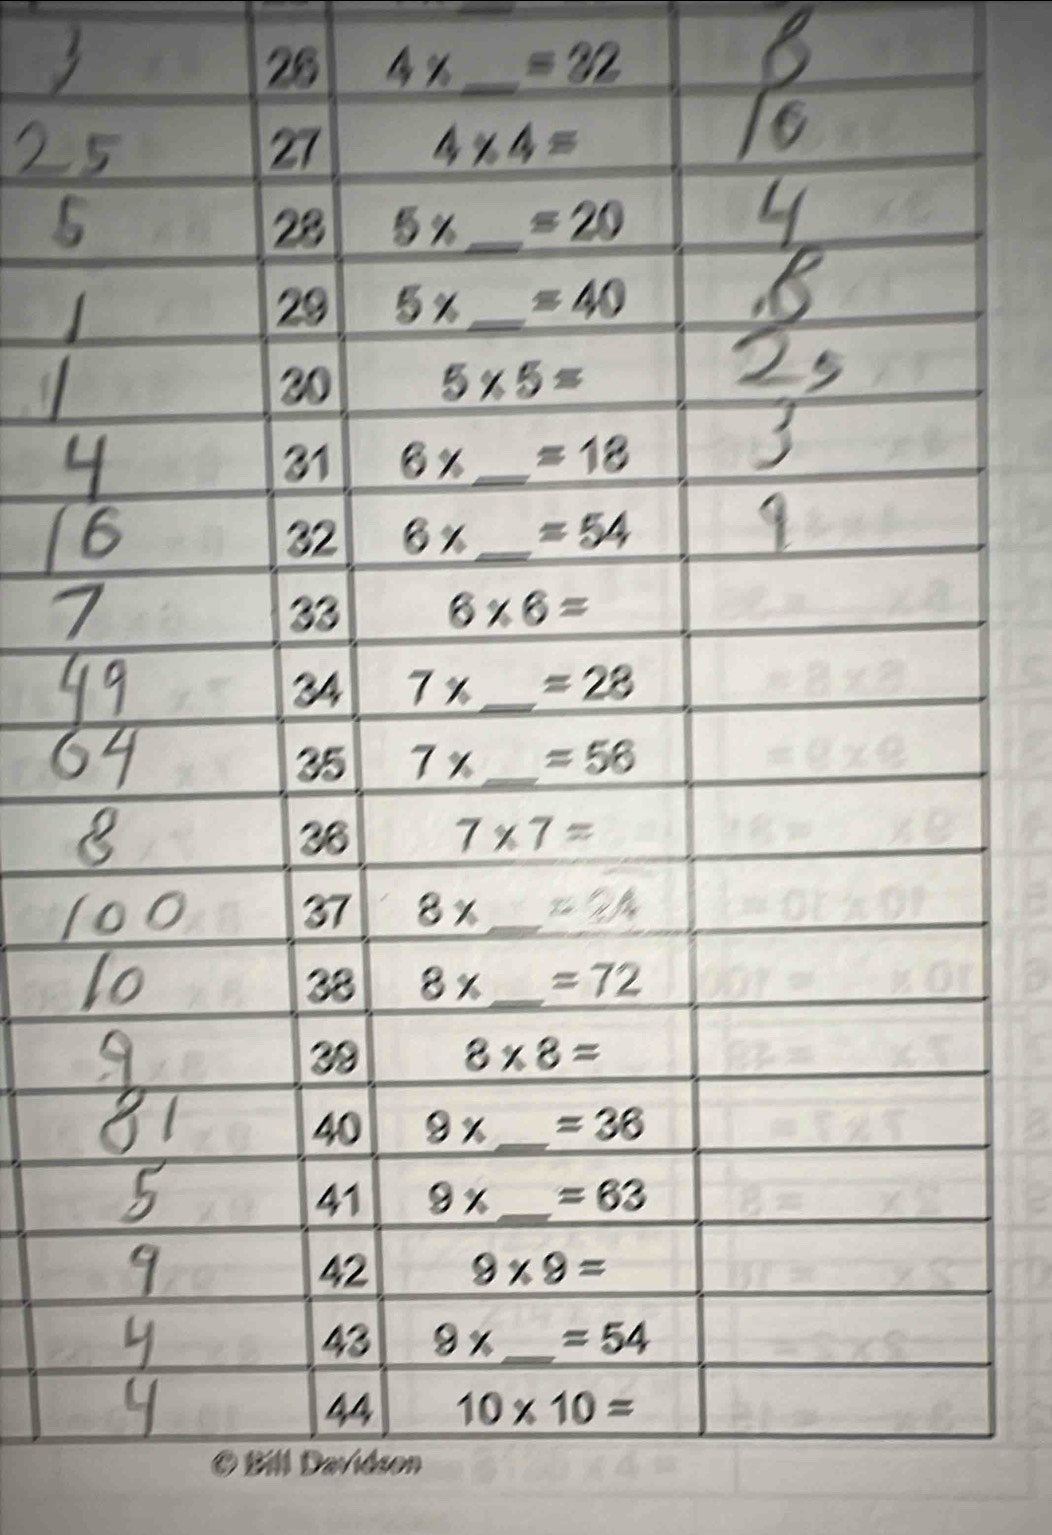 3 26 4 x __ = 32 8
25 27 4 x 4 = 16
5 28 5 x __ = 20 4
1 29 5 x __ = 40 8
1 30 5 x 5 = 25
4 31 6 x __ = 18 3
16 32 6 x __ = 54 9
7 33 6 x 6 =
49 34 7 x __ = 28
64 35 7 x __ = 56
8 36 7 x 7 =
100 37 8 x __ = 24
10 38 8 x __ = 72
9 39 8 x 8 =
81 40 9 x __ = 36
5 41 9 x __ = 63
9 42 9 x 9 =
4 43 9 x __ = 54
4 44 10 x 10 =
© Bill Davidson